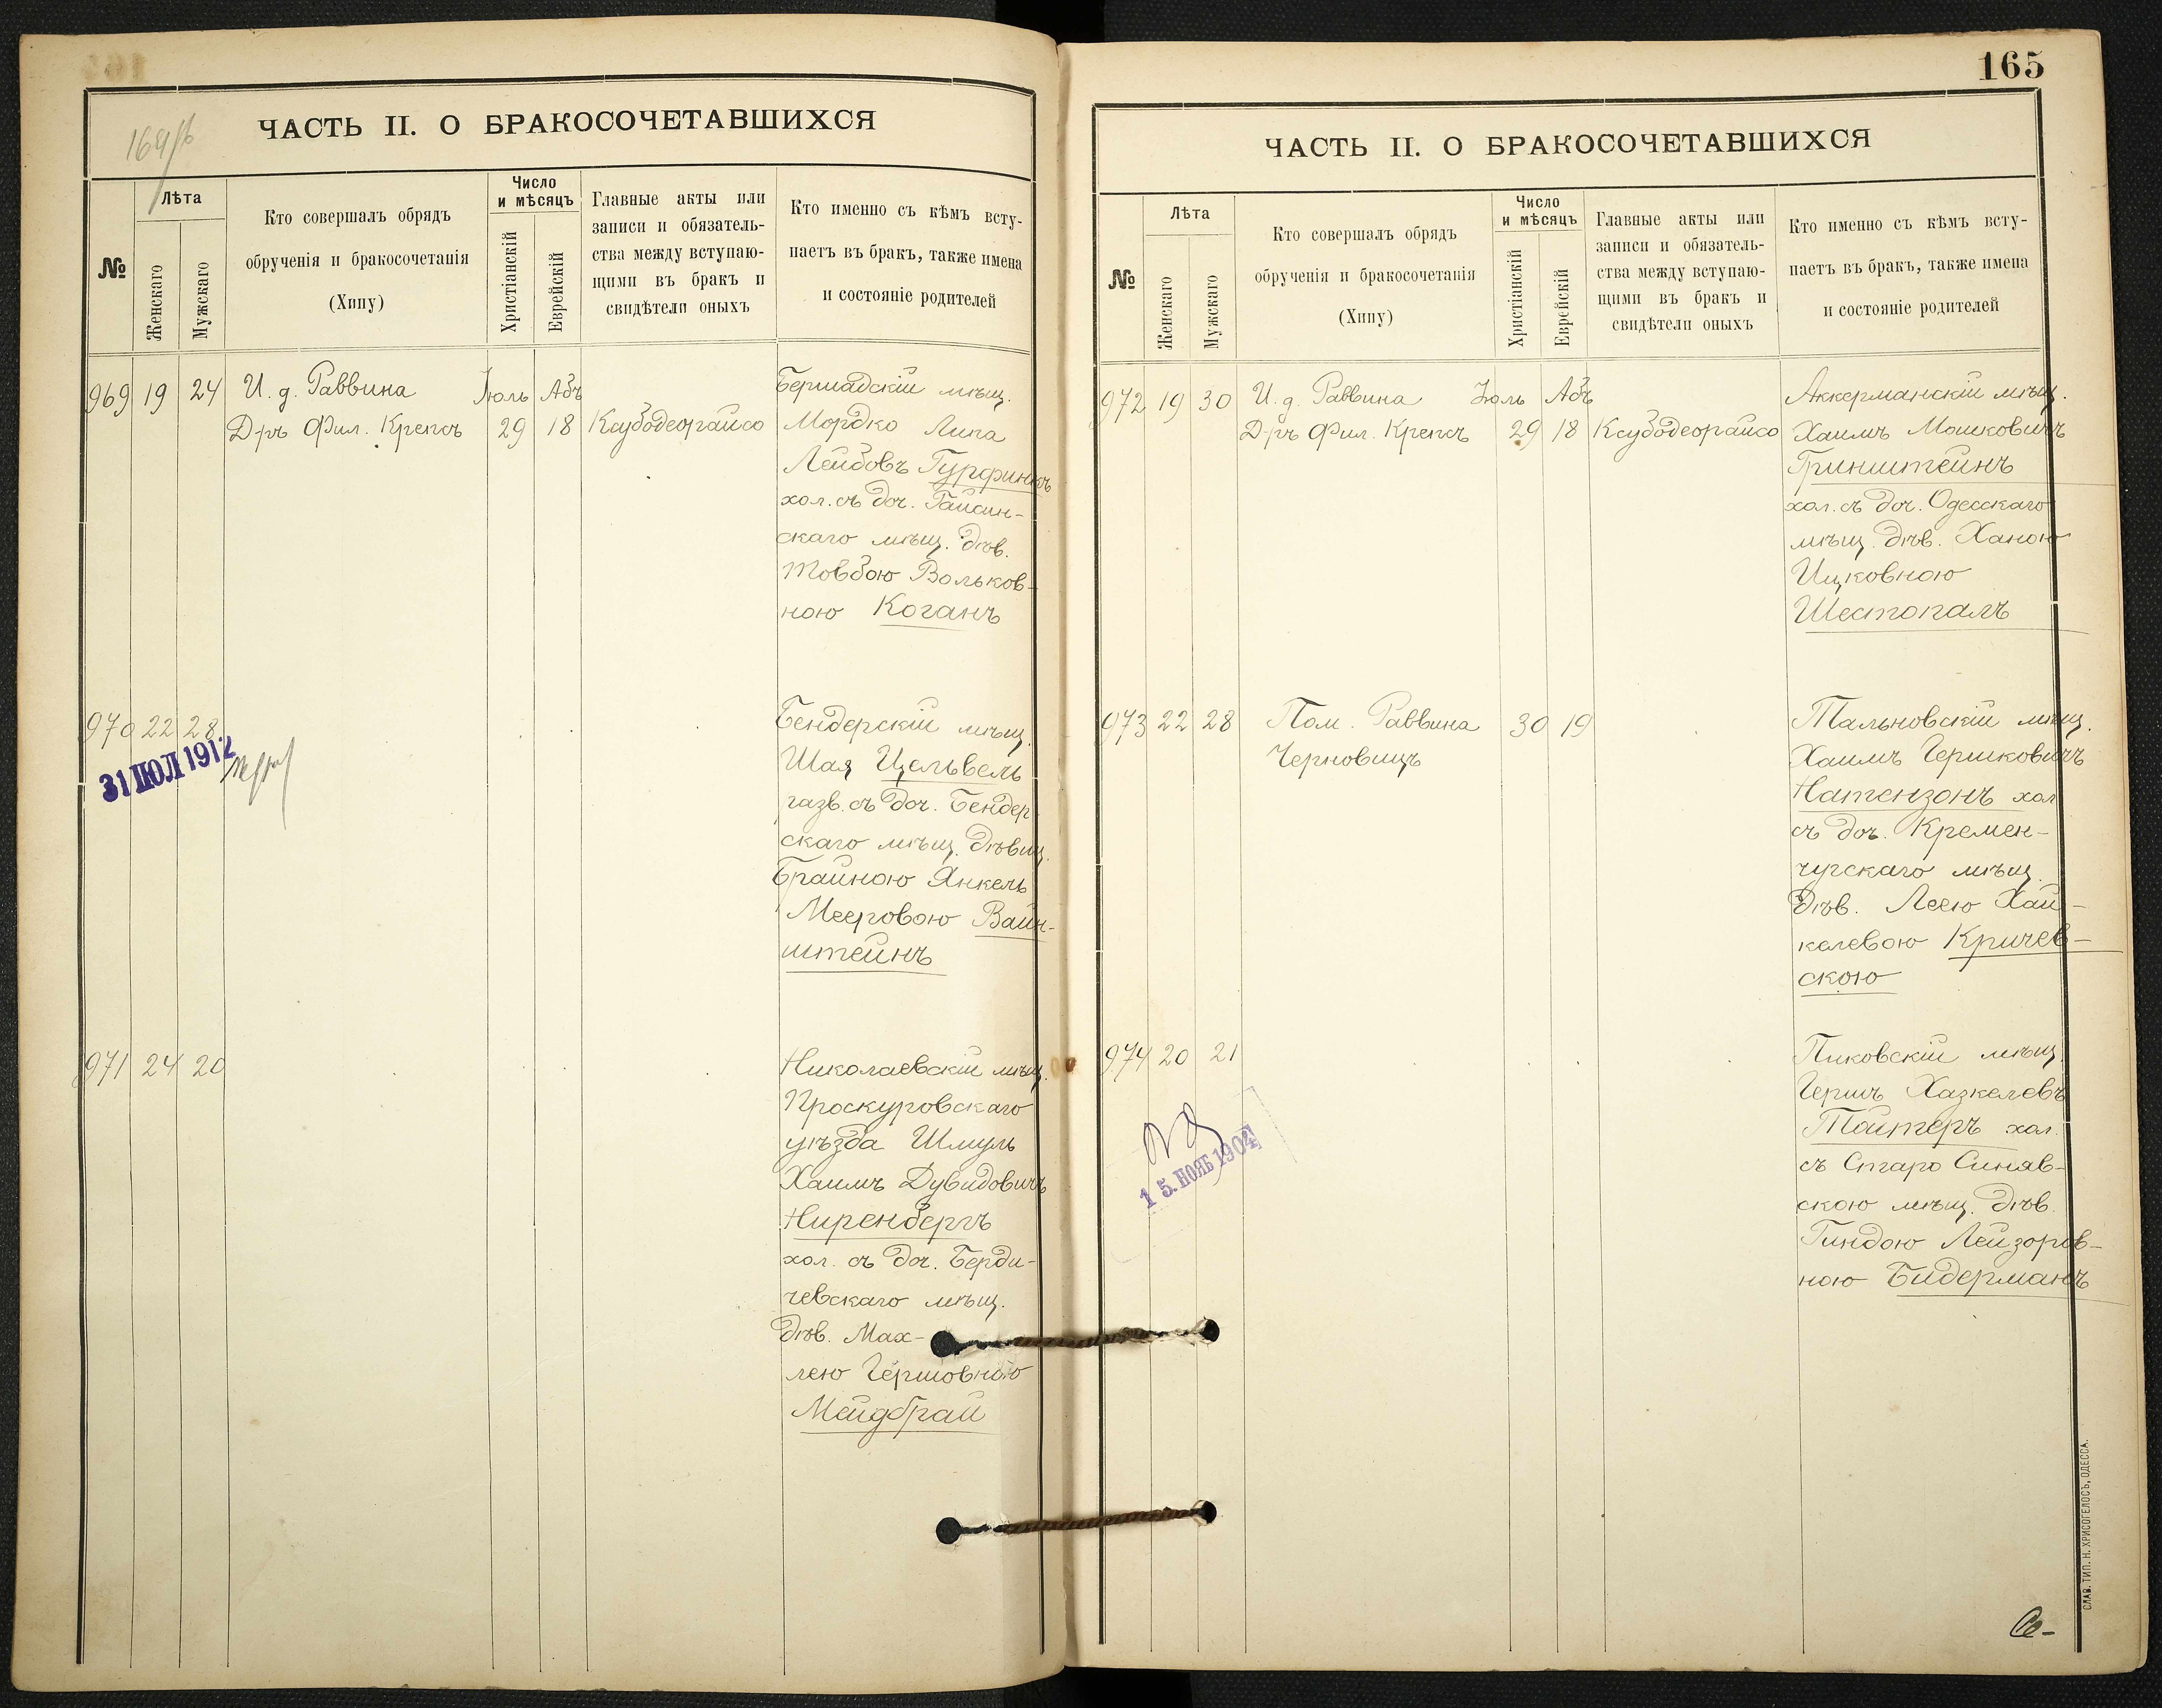 ЧАСТЬ II. О БРАКОСОЧЕТАВШИХСЯ
№
Лѣта
Женскаго
Мужскаго
Кто совершалъ обрядъ
обрученія и бракосочетанія
(Хипу)
Число
и мѣсяцъ
Христіанскій
Еврейскій
Главные акты или
записи и обязатель-
ства между вступаю-
щими въ бракъ и
свидѣтели оныхъ
Кто именно съ кѣмъ всту-
паетъ въ бракъ, также имена
и состояніе родителей
969 19 24 И. д. Раввина Іюль Абъ Бершадскій мѣщ.
Д-ръ Фил. Крепсъ 29 18 Ксубодеорайсо Мордко Липа
Лейбовъ Гурфинкъ
хол. съ доч. Гайсин-
скаго мѣщ. дѣв.
Товбою Вольков-
ною Коганъ
970 22 28 Бендерскій мѣщ.
31 ІЮЛ 1912
Шая Цельвель
разв. съ доч. Бендер-
скаго мѣщ. дѣвиц.
Брайною Янкель
Мееровою Вайн-
штейнъ
971 24 20 Николаевскій мѣщ.
Проскуровскаго
уѣзда Шмуль
Хаимъ Дувидовичъ
Ниренбергъ
хол. съ доч. Берди-
чевскаго мѣщ.
дѣв. Мах-
лею Гершовною
Мейдбрай
165
ЧАСТЬ II. О БРАКОСОЧЕТАВШИХСЯ
№
Лѣта
Женскаго
Мужскаго
Кто совершалъ обрядъ
обрученія и бракосочетанія
(Хипу)
Число
и мѣсяцъ
Христіанскій
Еврейскій
Главные акты или
записи и обязатель-
ства между вступаю-
щими въ бракъ и
свидѣтели оныхъ
Кто именно съ кѣмъ всту-
паетъ въ бракъ, также имена
и состояніе родителей
972 19 30 И. д. Раввина Іюль Абъ Аккерманскій мѣщ.
Д-ръ Фил. Крепсъ 29 18 Ксубодеорайсо Хаимъ Мошковичъ
Гринштейнъ
хол. съ доч. Одесскаго
мѣщ. дѣв. Ханою
Ицковною
Шестопалъ
973 22 28 Пом. Раввина 30 19 Тальновскій мѣщ.
Черновицъ Хаимъ Гершковичъ
Натензонъ хол
съ доч. Кремен-
чугскаго мѣщ.
дѣв. Леею Хай-
келевою Кричев-
скою
974 20 21 Пиковскій мѣщ.
Гершъ Хазкелевъ
Тайтеръ хол.
15. НОЯБ 1904
съ Старо Синяв-
скою мѣщ. дѣв.
Гиндою Лейзоров-
ною Бидерманъ
СЛАВ. ТИП. Н. ХРИСОГЕЛОСЪ, ОДЕССА.
Се-